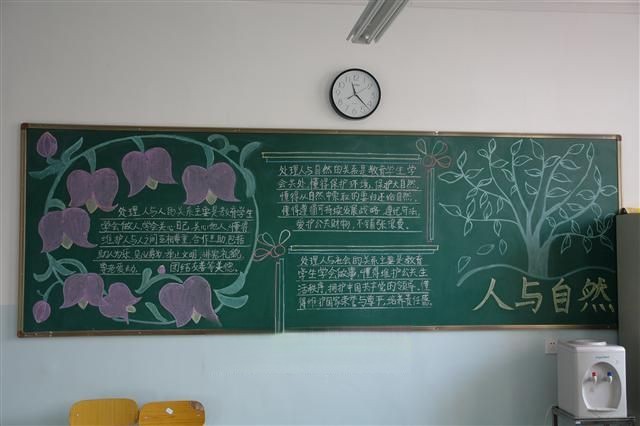 处理人与人的关系主要是教育学生
学会做人,学会关心自己,关心他人,懂得
维护人与人之间互相尊重,合作互助,包括
助人为乐,见义勇为,举止文明,讲究礼貌,
尊老爱幼,
团结友善等美德。
处理人与自然的关系是教育学生学
会共处,懂得保护环境,保护大自然,
懂得从自然中索取的要归还给自然,
懂得遵循可持续发展战略,遵纪守法,
爱护公共财物,不铺张浪费。
处理人与社会的关系主要是教育
学生学会做事,懂得维护公共生
活秩序,拥护中国共产党的领导,懂
得维护国家荣誉与尊严,培养责任感。
人与自然